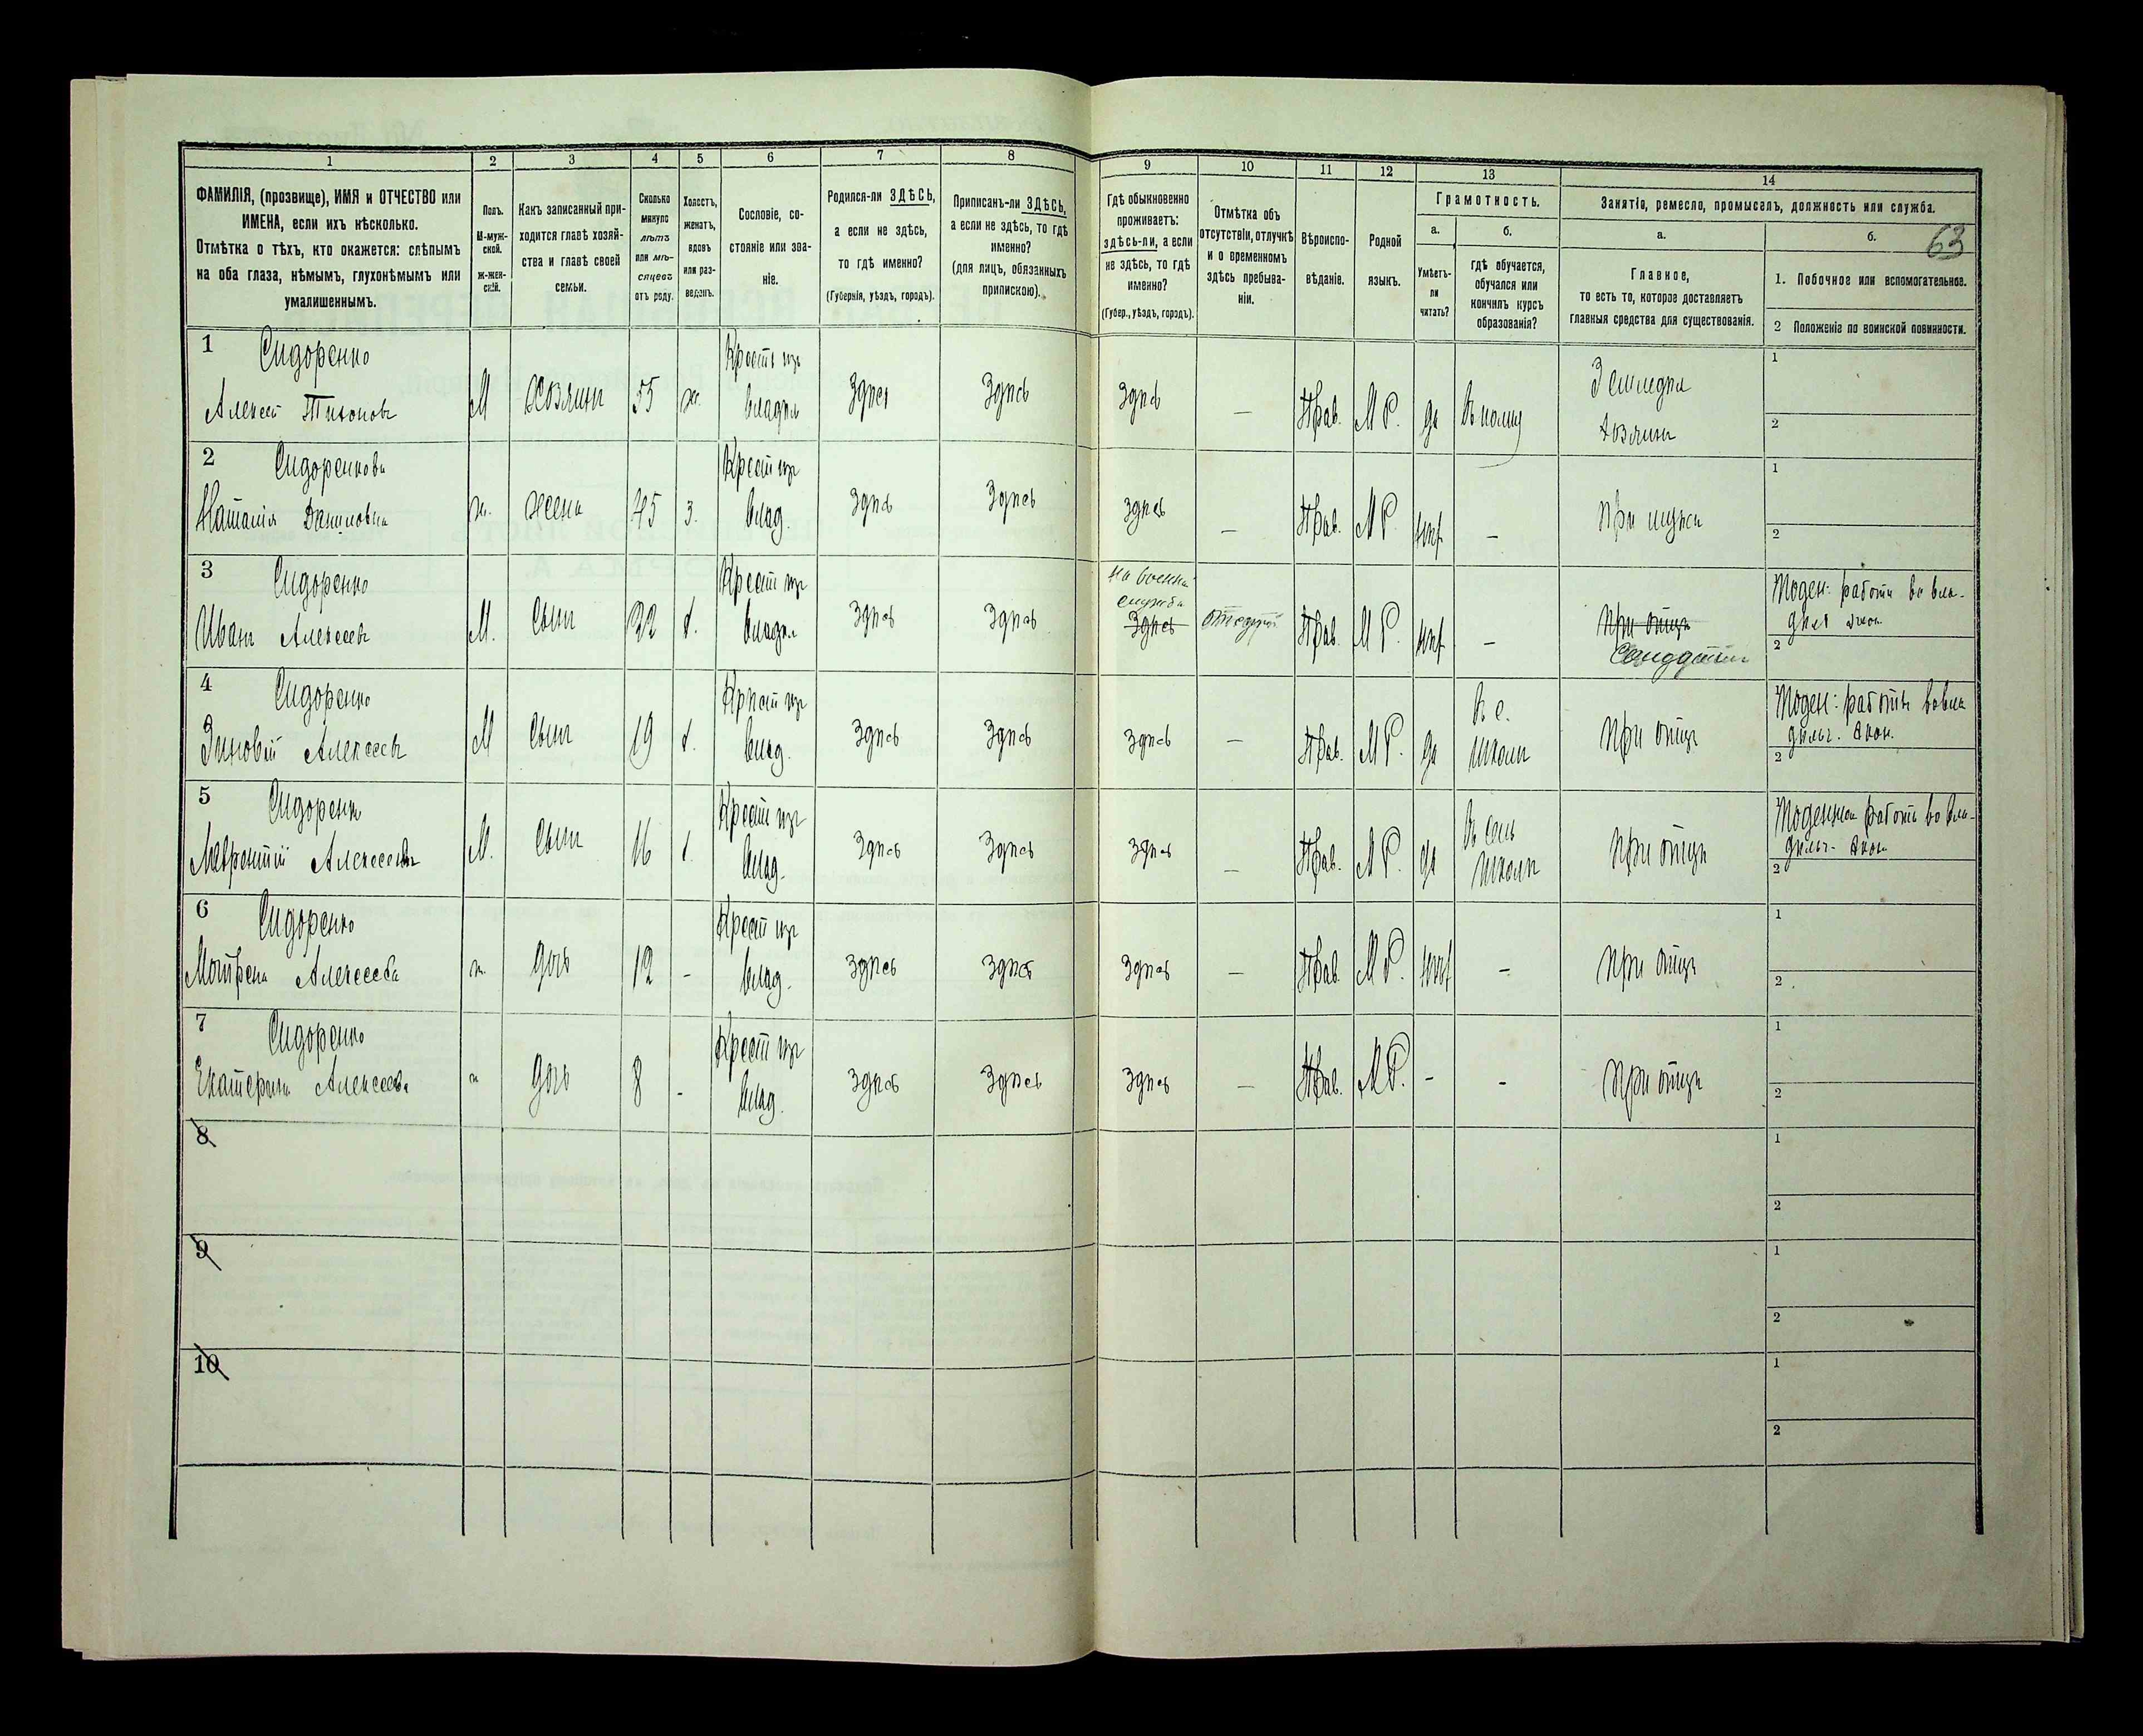 1 2 3 4 5 6 7 8 9 10 11 12 13 14
ФАМИЛІЯ, (прозвище), ИМЯ и ОТЧЕСТВО или
ИМЕНА, если ихъ нѣсколько.
Отмѣтка о тѣхъ, кто окажется: слѣпымъ
на оба глаза, нѣмымъ, глухонѣмымъ или
умалишеннымъ.
Полъ.
М-муж-
ской.
Ж-жен-
скій.
Какъ записанный при-
ходится главѣ хозяй-
ства и главѣ своей
семьи.
Сколько
минуло
лѣтъ
или мѣ-
сяцевъ
отъ роду.
Холостъ,
женатъ,
вдовъ
или раз-
веденъ.
Сословіе, со-
стояніе или зва-
ніе.
Родился-ли ЗДѢСЬ,
а если не здѣсь,
то гдѣ именно?
(Губернія, уѣздъ, городъ).
Приписанъ-ли ЗДѢСЬ,
а если не здѣсь, то гдѣ
именно?
(для лицъ, обязанныхъ
припискою).
Гдѣ обыкновенно
проживаетъ:
здѣсь-ли, а если
не здѣсь, то гдѣ
именно?
(Губер., уѣздъ, городъ).
Отмѣтка объ
отсутствіи, отлучкѣ
и о временномъ
здѣсь пребыва-
ніи.
Вѣроиспо-
вѣданіе.
Родной
языкъ.
Грамотность.
а.
Умѣетъ-
ли
читать?
б.
гдѣ обучается,
обучался или
кончилъ курсъ
образованія?
Занятіе, ремесло, промыселъ, должность или служба.
а.
Главное,
то есть то, которое доставляетъ
главныя средства для существованія.
б.
63
1. Побочное или вспомогательное.
2 Положеніе по воинской повинности.
1 Сидоренко
Алексей Тихоновъ
М Хозяинъ 55 ж. Крест изъ
владѣл
Здѣсь Здѣсь Здѣсь — Прав. М Р. да
Земледѣл
хозяинъ
1
2
2 Сидоренкова
Наталія Даниловна
ж. жена 45 з. Крест изъ
влад.
Здѣсь Здѣсь Здѣсь — Прав. М Р. — При мужѣ
1
2
3 Сидоренко
Иванъ Алексеевъ
М. Сынъ 22 х. Крест изъ
владѣл
Здѣсь Здѣсь
На военной
службѣ
Здѣсь
Прав. М Р. —
При отцѣ
2
4 Сидоренко
Зиновій Алексеевъ
М Сынъ 19 х. Крест изъ
влад.
Здѣсь Здѣсь Здѣсь — Прав. М Р. да
В с.
школѣ
При отцѣ
2
5 Сидоренко
Лаврентій Алексеевъ
М. Сынъ 16 х. Крест изъ
влад.
Здѣсь Здѣсь Здѣсь — Прав. М Р. да
В сель
школѣ
При отцѣ
2
6 Сидоренко
Мотрена Алексеева
ж. дочь 12 - Крест изъ
влад.
Здѣсь Здѣсь Здѣсь — Прав. М Р. - При отцѣ
1
2
7 Сидоренко
Екатерина Алексеева
ж дочь 8 - Крест изъ
влад.
Здѣсь Здѣсь Здѣсь — Прав. М Р. - - При отцѣ
1
2
8
1
2
9
1
2
10
1
2